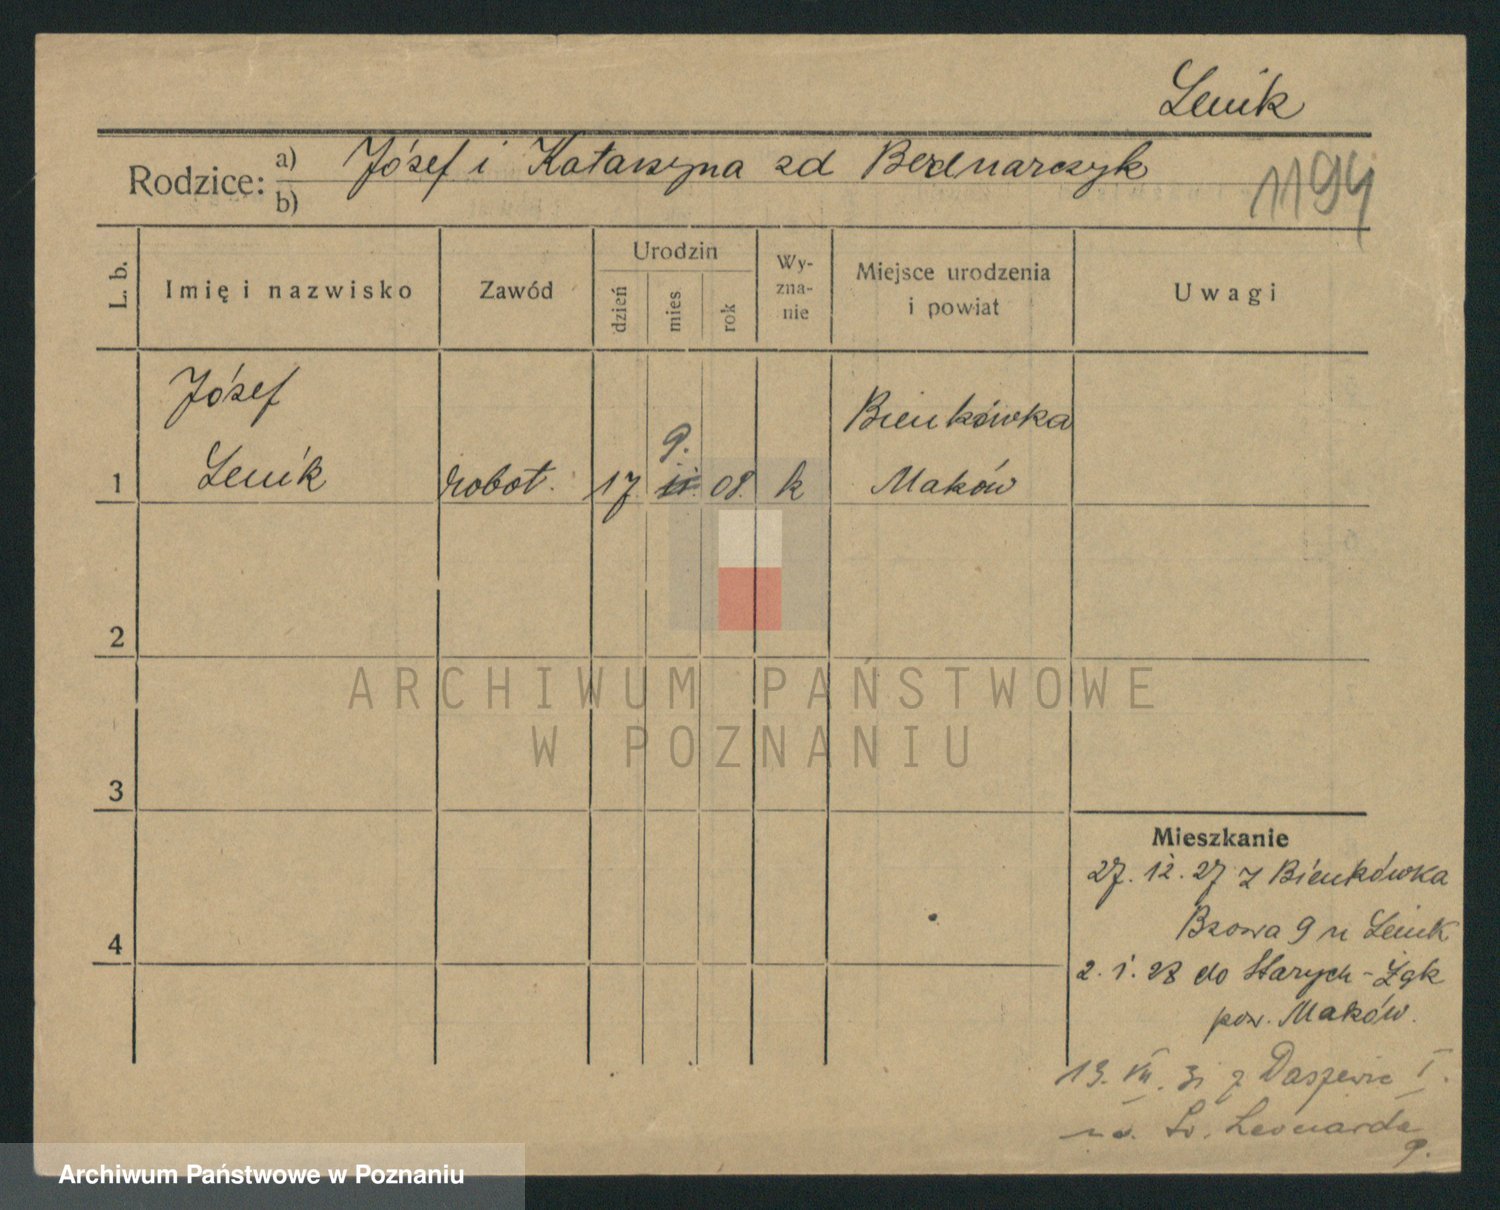 Lenik
Rodzice: a) Józef i Katarzyna zd Bednarczyk
b)
1194
L. b.
Imię i nazwisko
Zawód
Urodzin
dzień
mies
rok
Wy-
zna-
nie
Miejsce urodzenia
i powiat
Uwagi
Józef
Lenik
1
robot.
17
9.
08.
k
Bieńkówka
Maków
2
3
4
ARCHIWUM PAŃSTWOWE
W POZNANIU
Mieszkanie
27. 12. 27 z Bieńkówka
9 u Lenik
2. 1. 28 do Starych-
pow. Maków.
13. VII. 31 z I.
Św. Leonarda
9.
Archiwum Państwowe w Poznaniu